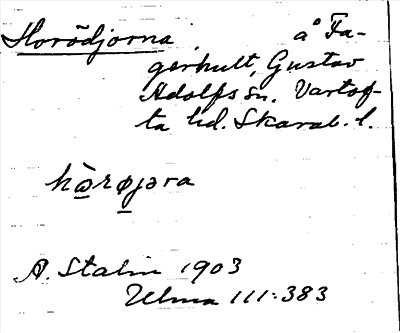 Horödjorna, å Fa-
gerhult, Gustav
Adolfs sn. Vartof-
ta hd. Skarab. l.
hὼrøjəra
A. Stalin 1903
Ulma 111:383